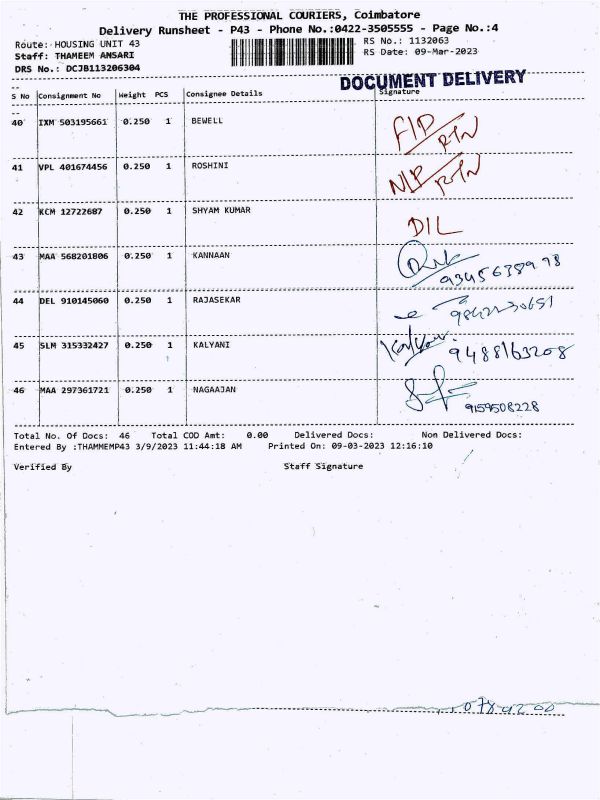 THE PROFESSIONAL COURIERS, Coimbatore
Delivery Runsheet - P43 - Phone No.:0422-3505555 - Page No.:4
Route: HOUSING UNIT 43 RS No.: 1132063
Staff: THAMEEM ANSARI RS Date: 09-Mar-2023
DRS No.: DCJB113206304
DOCUMENT DELIVERY
S No Consignment No Weight PCS Consignee Details Signature
40 IXM 503195661 0.250 1 BEWELL RTN
41 VPL 401674456 0.250 1 ROSHINI NLP/RTN
42 KCM 12722687 0.250 1 SHYAM KUMAR DIL
43 MAA 568201806 0.250 1 KANNAAN
44 DEL 910145060 0.250 1 RAJASEKAR
45 SLM 315332427 0.250 1 KALYANI 9488163208
46 MAA 297361721 0.250 1 NAGAAJAN 9159508228
Total No. Of Docs: 46 Total COD Amt: 0.00 Delivered Docs: Non Delivered Docs:
Entered By :THAMMEMP43 3/9/2023 11:44:18 AM Printed On: 09-03-2023 12:16:10
Verified By Staff Signature